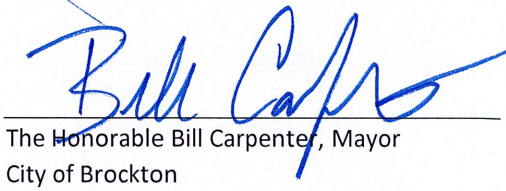 Bill Carpenter
The Honorable Bill Carpenter, Mayor
City of Brockton